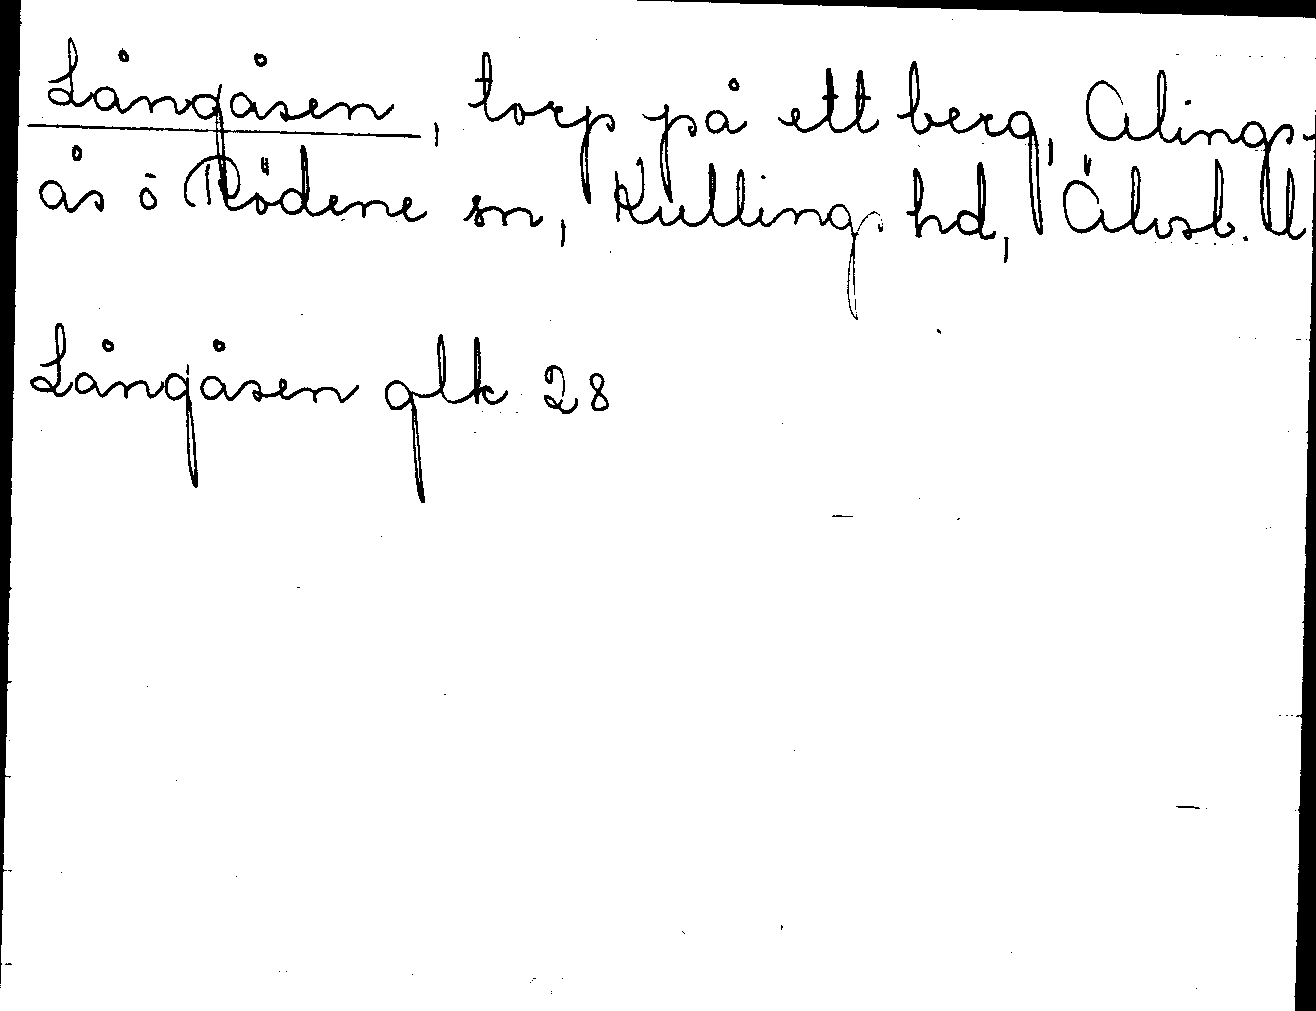 Långåsen, torp på ett berg, Alings-
ås ö Rödene sn, Kullings hd, Älvsb. l
Långåsen glk 28